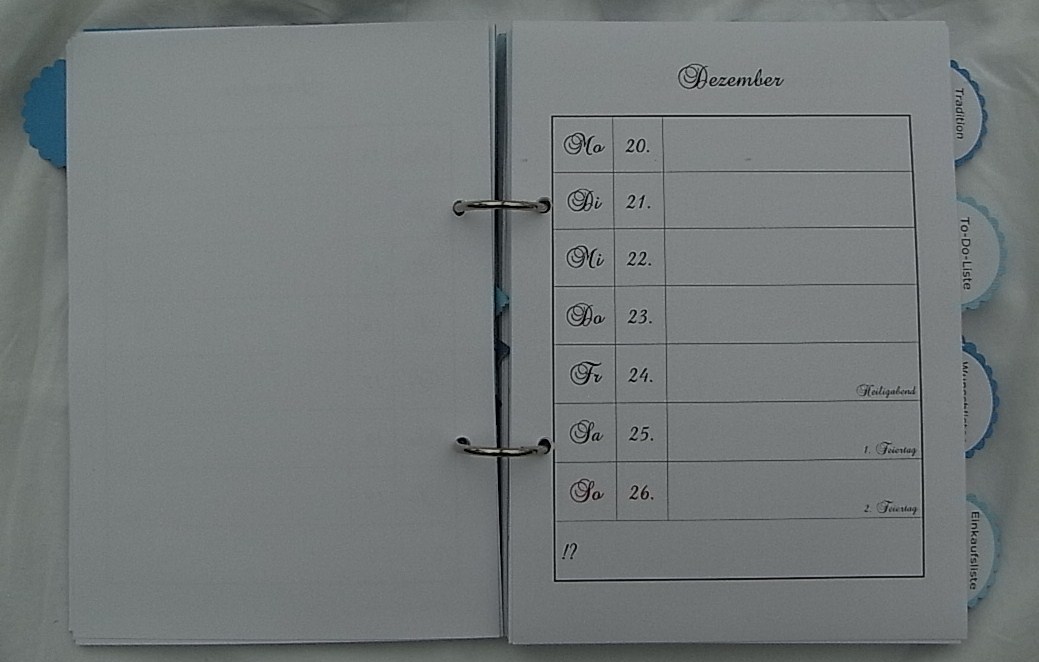 Dezember
Mo 20.
Di 21.
Mi 22.
Do 23.
Fr 24. Heiligabend
Sa 25. 1. Feiertag
So 26. 2. Feiertag
!?
Tradition
To-Do-Liste
Einkaufsliste